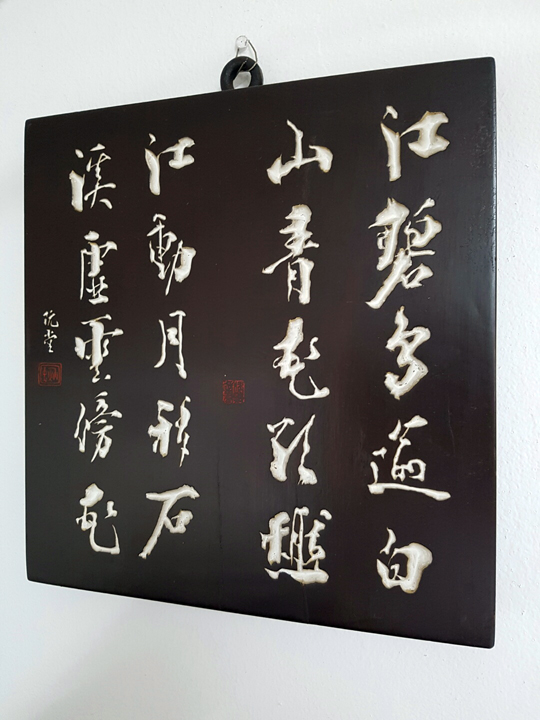 江碧鳥逾白
山青花欲燃
江動月移石
溪虛雲傍花
阮堂